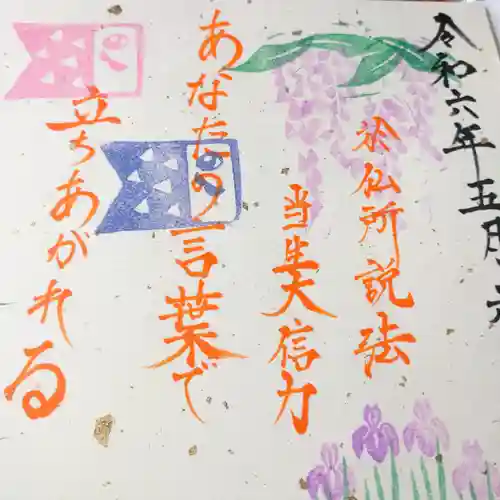 令和六年五月六
於仏所説法
当生大信力
あなたの言葉で
立ちあがれる